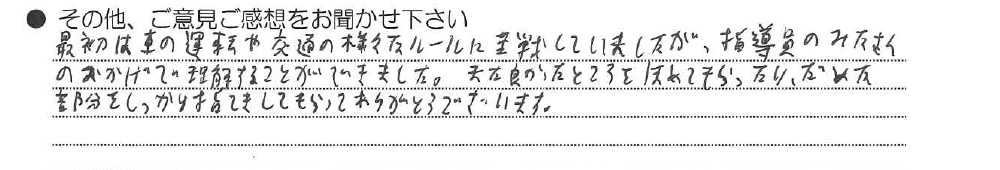 ● その他、ご意見ご感想をお聞かせ下さい
最初は車の運転や交通の様々なルールに苦戦していましたが、指導員のみなさん
のおかげで理解することができました。また良かったところをほめてもらったり、だめな
部分をしっかり指てきしてもらってありがとうございます。